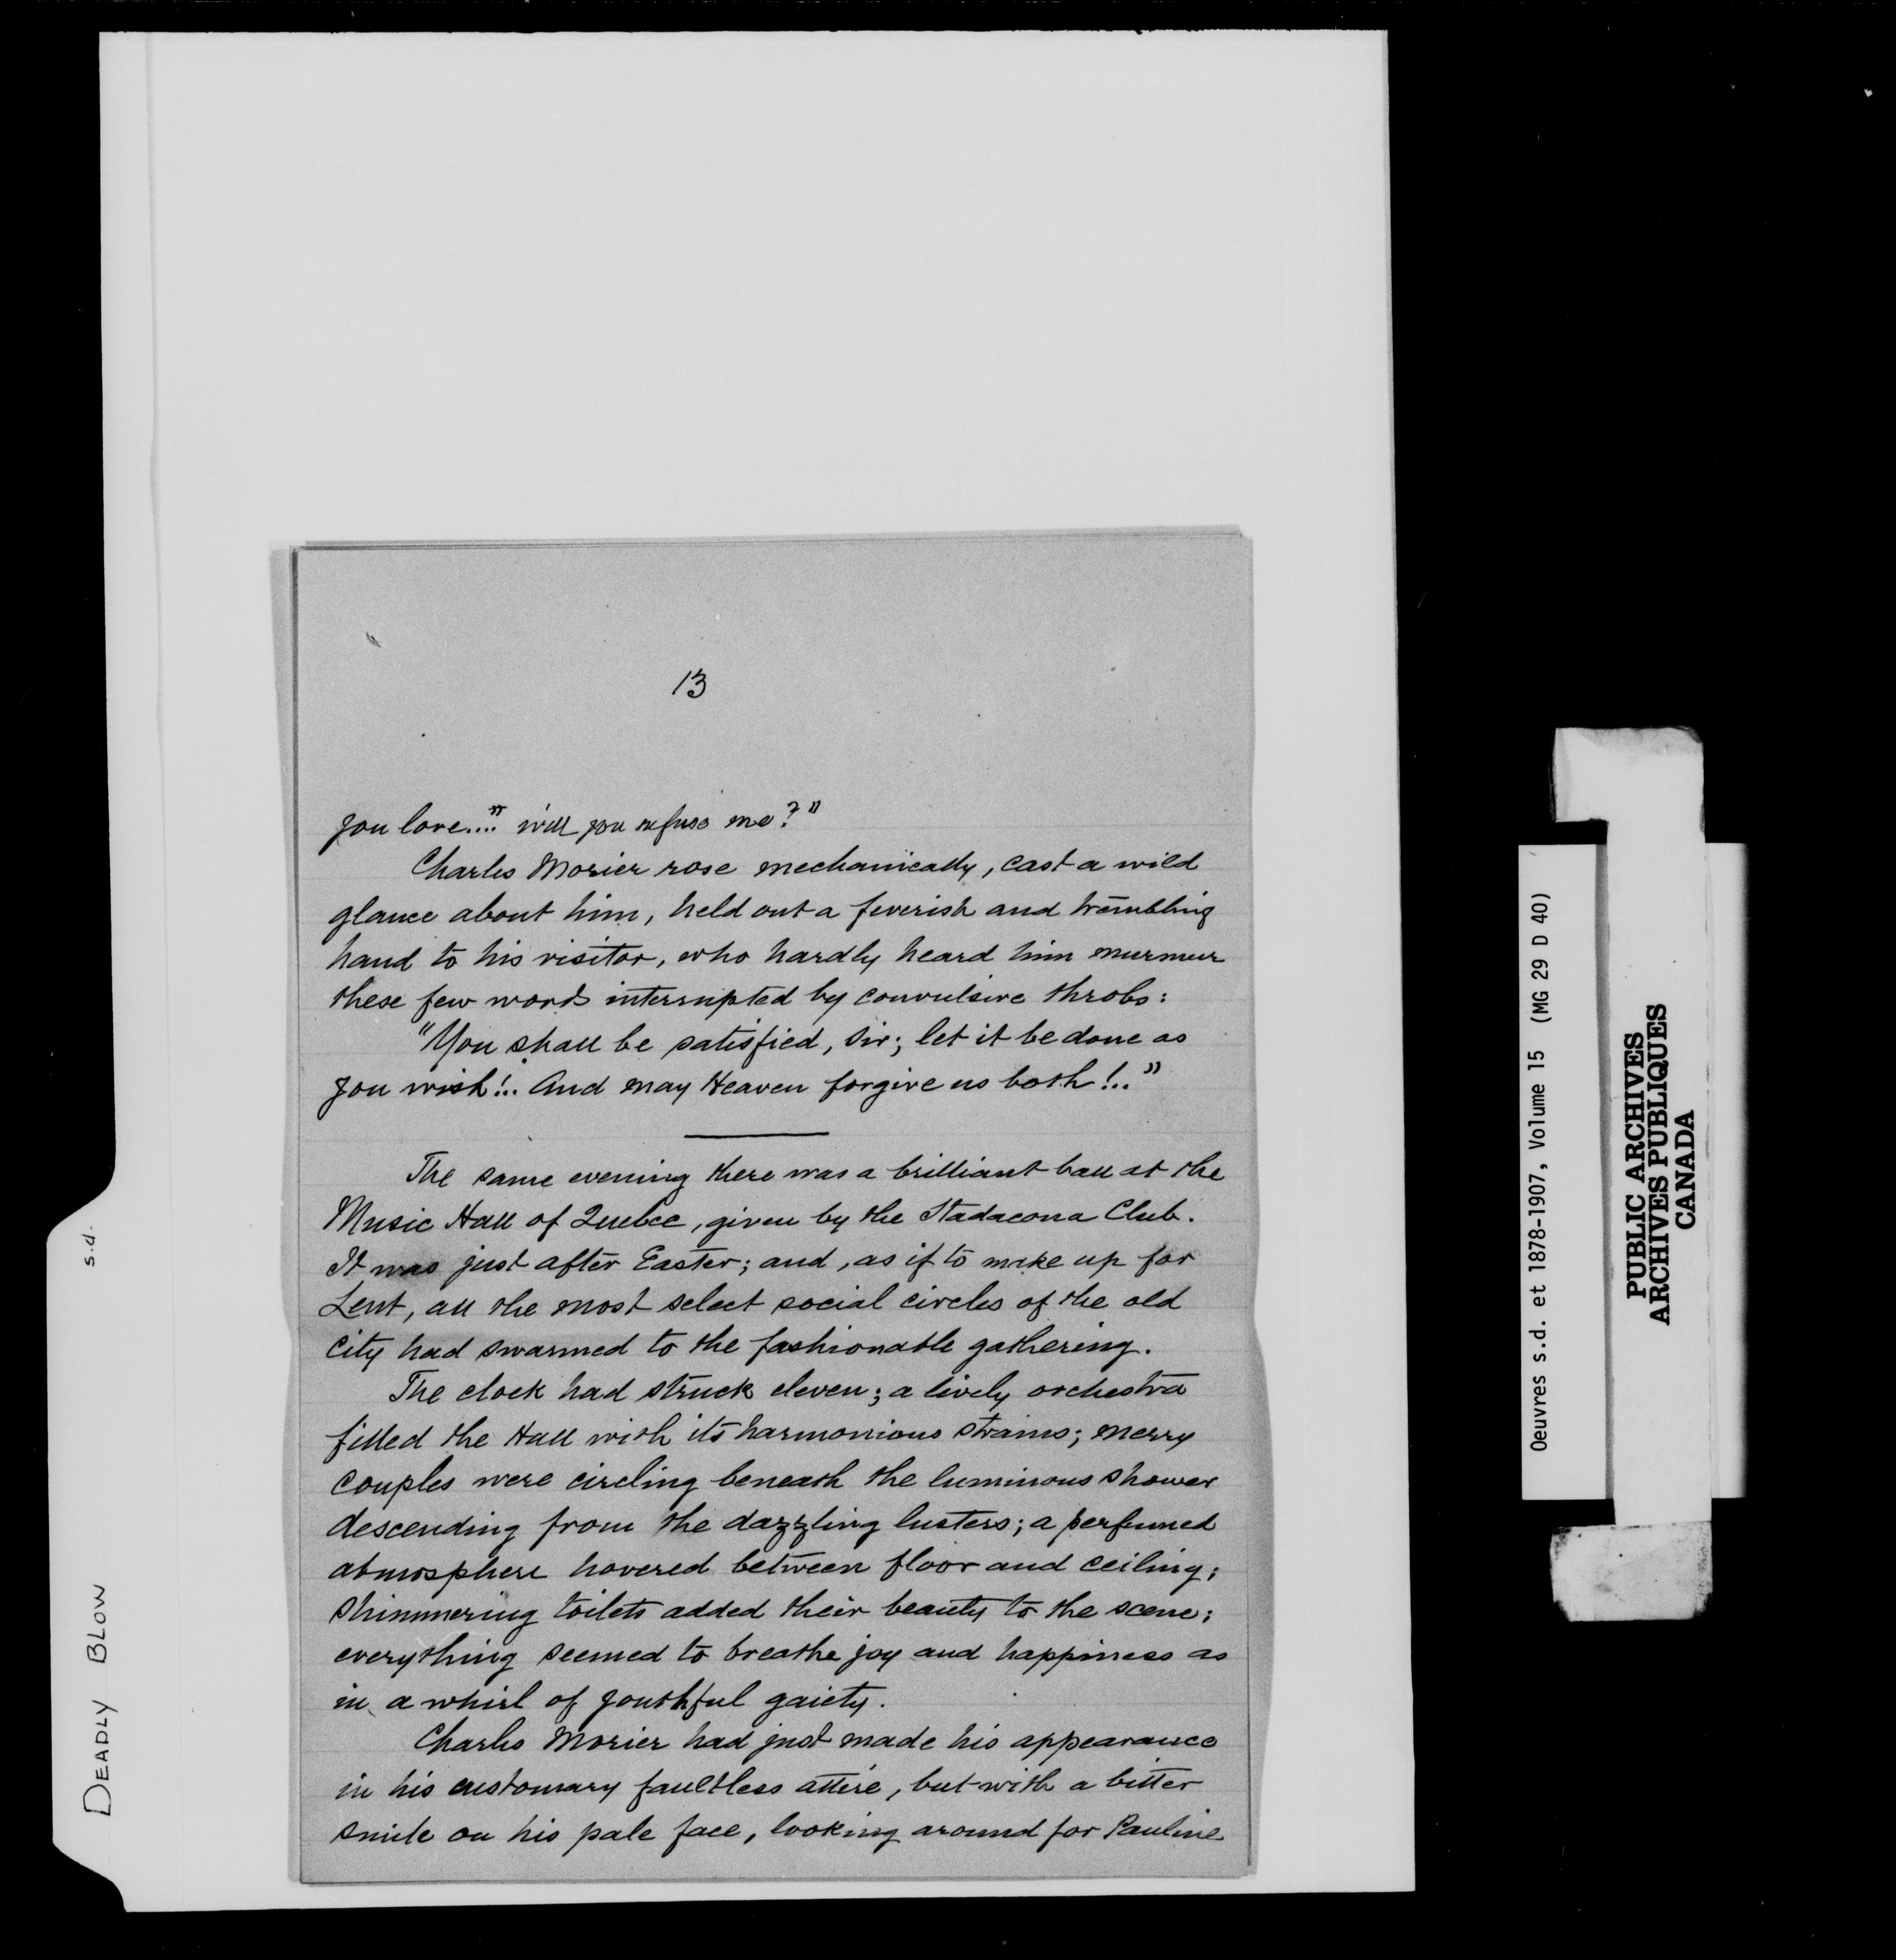 13
you love...." will you refuse me?"
Charles Morier rose mechanically, cast a wild
glance about him, held out a feverish and trembling
hand to his visitor, who hardly heard him murmur
these few words interrupted by convulsive throbs:
"You shall be satisfied, Sir; let it be done as
you wish!.. And may Heaven forgive us both!.."
The same evening there was a brilliant ball at the
Music Hall of Quebec, given by the Stadacona Club.
It was just after Easter; and, as if to make up for
Lent, all the most select social circles of the old
City had swarmed to the fashionable gathering.
The clock had struck eleven; a lively orchestra
filled the Hall with its harmonious strains; merry
couples were circling beneath the luminous shower
descending from the dazzling lusters; a perfumed
atmosphere hovered between floor and ceiling;
shimmering toilets added their beauty to the scene;
everything seemed to breathe joy and happiness as
in a whirl of youthful gaiety.
Charles Morier had just made his appearance
in his customary faultless attire, but with a bitter
smile on his pale face, looking around for Pauline
DEADLY BLOW
s.d.
Oeuvres s.d. et 1878-1907, Volume 15 (MG 29 D 40)
PUBLIC ARCHIVES
ARCHIVES PUBLIQUES
CANADA